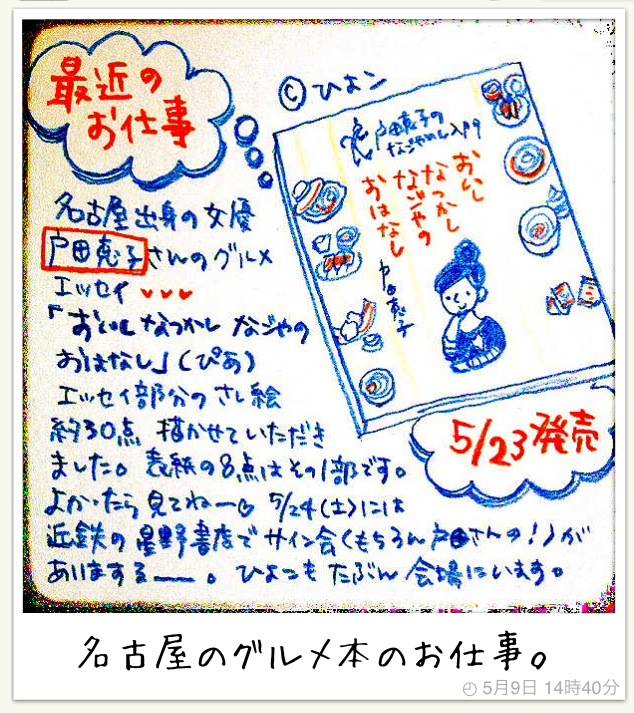 最近の
お仕事
©ひよこ
戸田恵子の
なごやめし入門
おいし
なつかし
なごやの
おはなし
戸田恵子
名古屋出身の女優
戸田恵子さんのグルメ
エッセイ
「おいし なつかし なごやの
おはなし」(ぴあ)
エッセイ部分のさし絵
約30点 描かせていただき
ました。表紙の8点はその1部です。
よかったら見てねー♡ 5/24(土)には
近鉄の星野書店でサイン会(もちろん戸田さんの!)が
ありまする――。ひよこもたぶん会場にいます。
5/23発売
名古屋のグルメ本のお仕事。
5月9日 14時40分